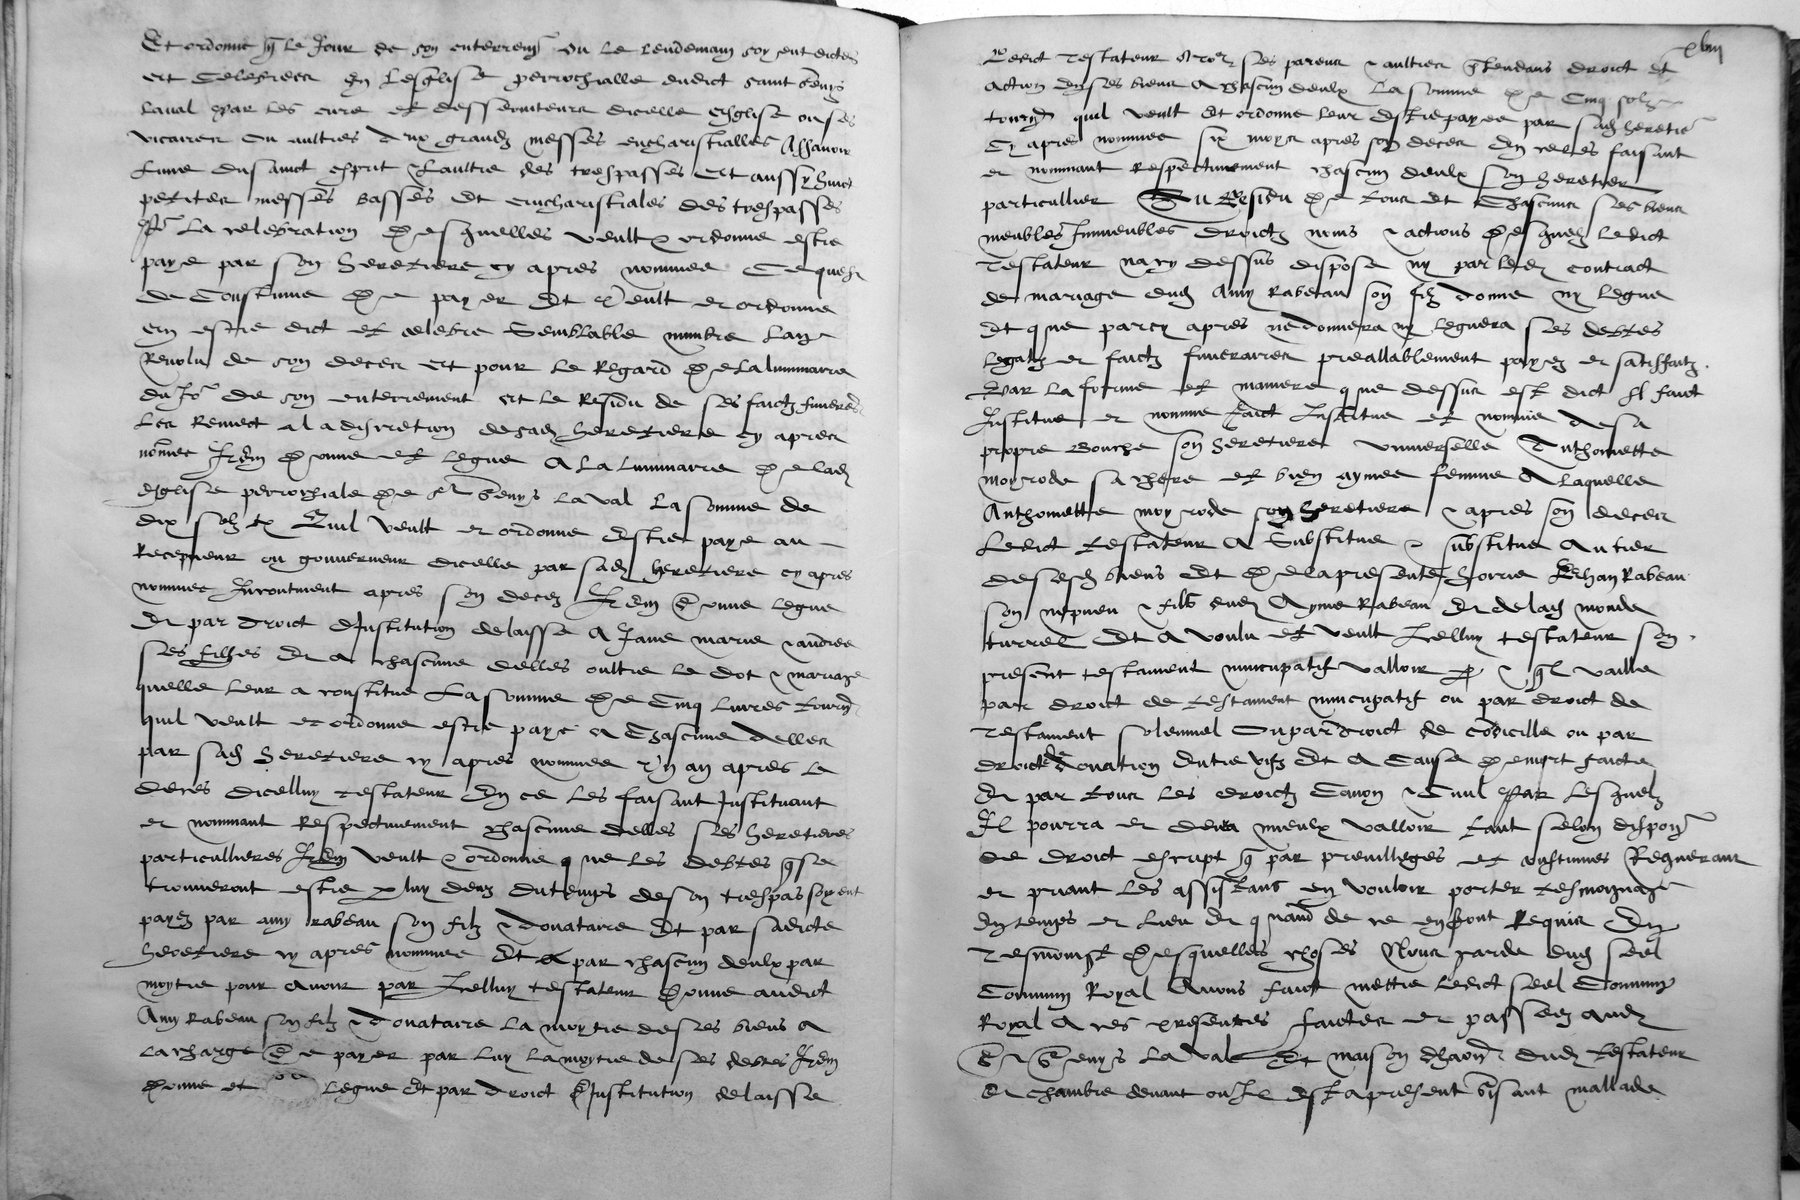 Et ordonne q̃ le Jour de son enterremt ou le lendemain soyent dictes
et celebrees En lesglise perrochialle dudict sainct Genys
Laval par les cure et desserviteurs dicelle Esglise ou ses
vicaires ou aultres deux grandz messes eucharistialles Assavoir
Lune du sainct esprit & Laultre des trespasses Et aussy huict
petites messes basses Et eucharistiales des trespasses
Por La celebration Desquelles veult & ordonne estre
paye par son heretiere cy apres nommee Ce quest
de Coustume De payer Et Veult et ordonne
en estre dict et celebre Semblable nombre Lan
Revolu de son deces Et pour le Regard De La luminaire
du Jor de son enterrement et le Residu de ses faictz funeres
Les Remect a la discretion de sad heretiere cy apres
nommee Item Donne et Legue A La Luminaire De lad
Esglise perrochiale De st Genys Laval La somme de
dix solz tz Quil veult et ordonne Estre paye au
Recepveur ou gouverneur dicelle par sad heretiere cy apres
nommee Incontinent apres son deces Item Donne legue
Et par droict dInstitution delaisse A Jane marie & andree
ses filhes Et a chascune delles oultre le dot & mariage
quelle leur a constitue La somme De Cinq Livres tourn
quil veult et ordonne estre paye a Chascune delles
par sad heretiere cy apres nommee Un an apres le
deces dicelluy testateur En ce les faisant Instituant
et nommant Respectivement chascune delles ses heretieres
particullieres Item veult & ordonne que les debtes q̃ se
trouveront estre p luy deuz du temps de son trespas soyent
payez par amy rabeau son filz & donataire Et par sadicte
heretiere cy apres nommee Et par chascun deulx par
moytie pour avoir par Icelluy testateur Donne audict
Amy Rabeau son filz & donataire La moytie de ses biens A
La charge De payer par luy La moytie de ses debtes Item
Donne et Legue Et par droict dInstitution delaisse
xliii
Ledict testateur A tos ses parens & aultres p̃tendans droict Et
action En ses biens A chascun deulx La somme De Cinq solz
tourn quil veult Et ordonne leur Estre payee par sad heretie
Cy apres nommee six moys apres son deces En ce les faisant
et nommant Respectivement chascun deulx son heretier
particullier Du Residu De tous Et Chascuns ses biens
meubles Immeubles droictz noms & actions Desquelz Ledict
testateur na cy dessus dispose ny par led contract
de mariage dud Amy Rabeau son filz donne ny legue
Et que par cy apres ne donnera ny leguera ses debtes
legatz et faictz funeraires preallablement payez et satisfaictz
Par La forme et maniere que dessus est dict Il faict
Institue et nomme faict Institue et nomme de sa
propre Bouche son heretiere universelle Anthoinette
moyrode sa chere et bien aymee femme A laquelle
Anthoinette moyrode son heretiere & apres son deces
Ledict testateur A Substitue & substitue Au tier
de sesd biens Et De la presente hoirie Jehan Rabeau
son nepveu & filz dud Ayme Rabeau Et de lad monde
turrel Et A voulu et veult Icelluy testateur son
present testament nuncupatif valloir & ql vaille
par droict de testament nuncupatif ou par droict de
testament solemnel Ou par droict de codicille ou par
droict de donation Entre vifz Et A Cause De mort faicte
Et par tous les droictz Canon & Civil Par Lesquelz
Il pourra et devra mieulx valloir tant selon dispon
de droict escript q̃ par previlleges et coustumes Requerant
et priant les assistans en vouloir porter tesmoignage
En temps et lieu Et quand de ce en seront Requis En
tesmoingt Desquelles choses Nous garde dud seel
Commun Royal Avons faict mettre ledict seel Commun
Royal A ces presentes faictes et passees aud
st Genys Laval Et maison dhaon dud testateur
Et chambre devant ou Il Est a present Gisant mallade